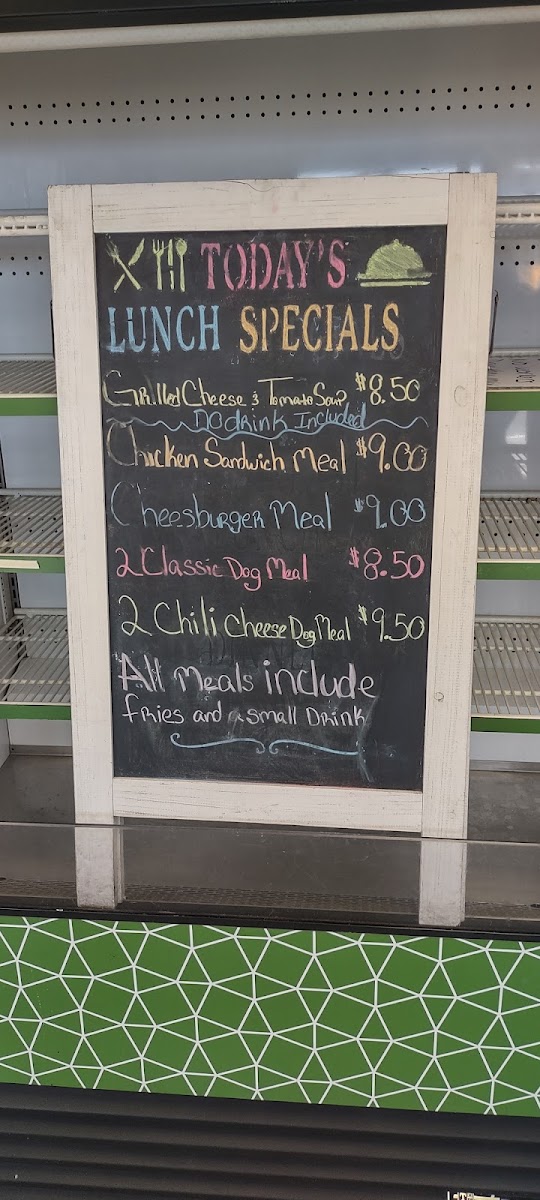 TODAY'S
LUNCH SPECIALS
Grilled Cheese & Tomato Soup $8.50
No drink Included
Chicken Sandwich Meal $9.00
Cheesburger Meal $9.00
2 Classic Dog Meal $8.50
2 Chili Cheese Dog Meal $9.50
All meals include
fries and a small Drink